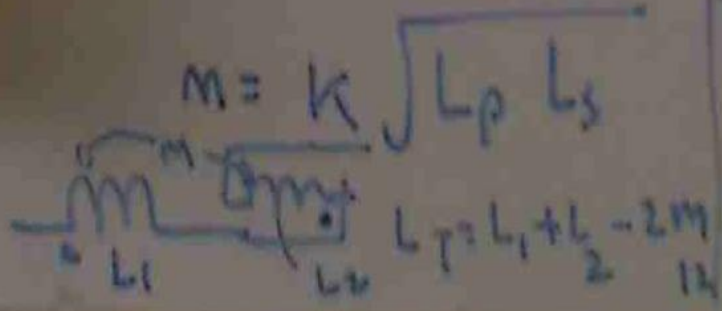 M = K √ Lp Ls
M
L1 L2 LT = L1 + L2 - 2M
12